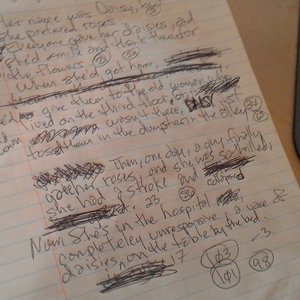 Her name was Daisy, but
she preferred roses.
Everyone gave her daisies, and
she'd smile and thank them for
the flowers.
When she'd get home,
give them to the old woman who
lived on the third floor,
DAISY just
wasn't there,
toss them in the dumpster in the alley
Then, one day, a guy finally
got her roses, and she was so thrilled,
she had a stroke and collapsed
23
Now she's in the hospital
completely unresponsive, a vase of
daisies on the table by the bed.
17
103
-3
101
98